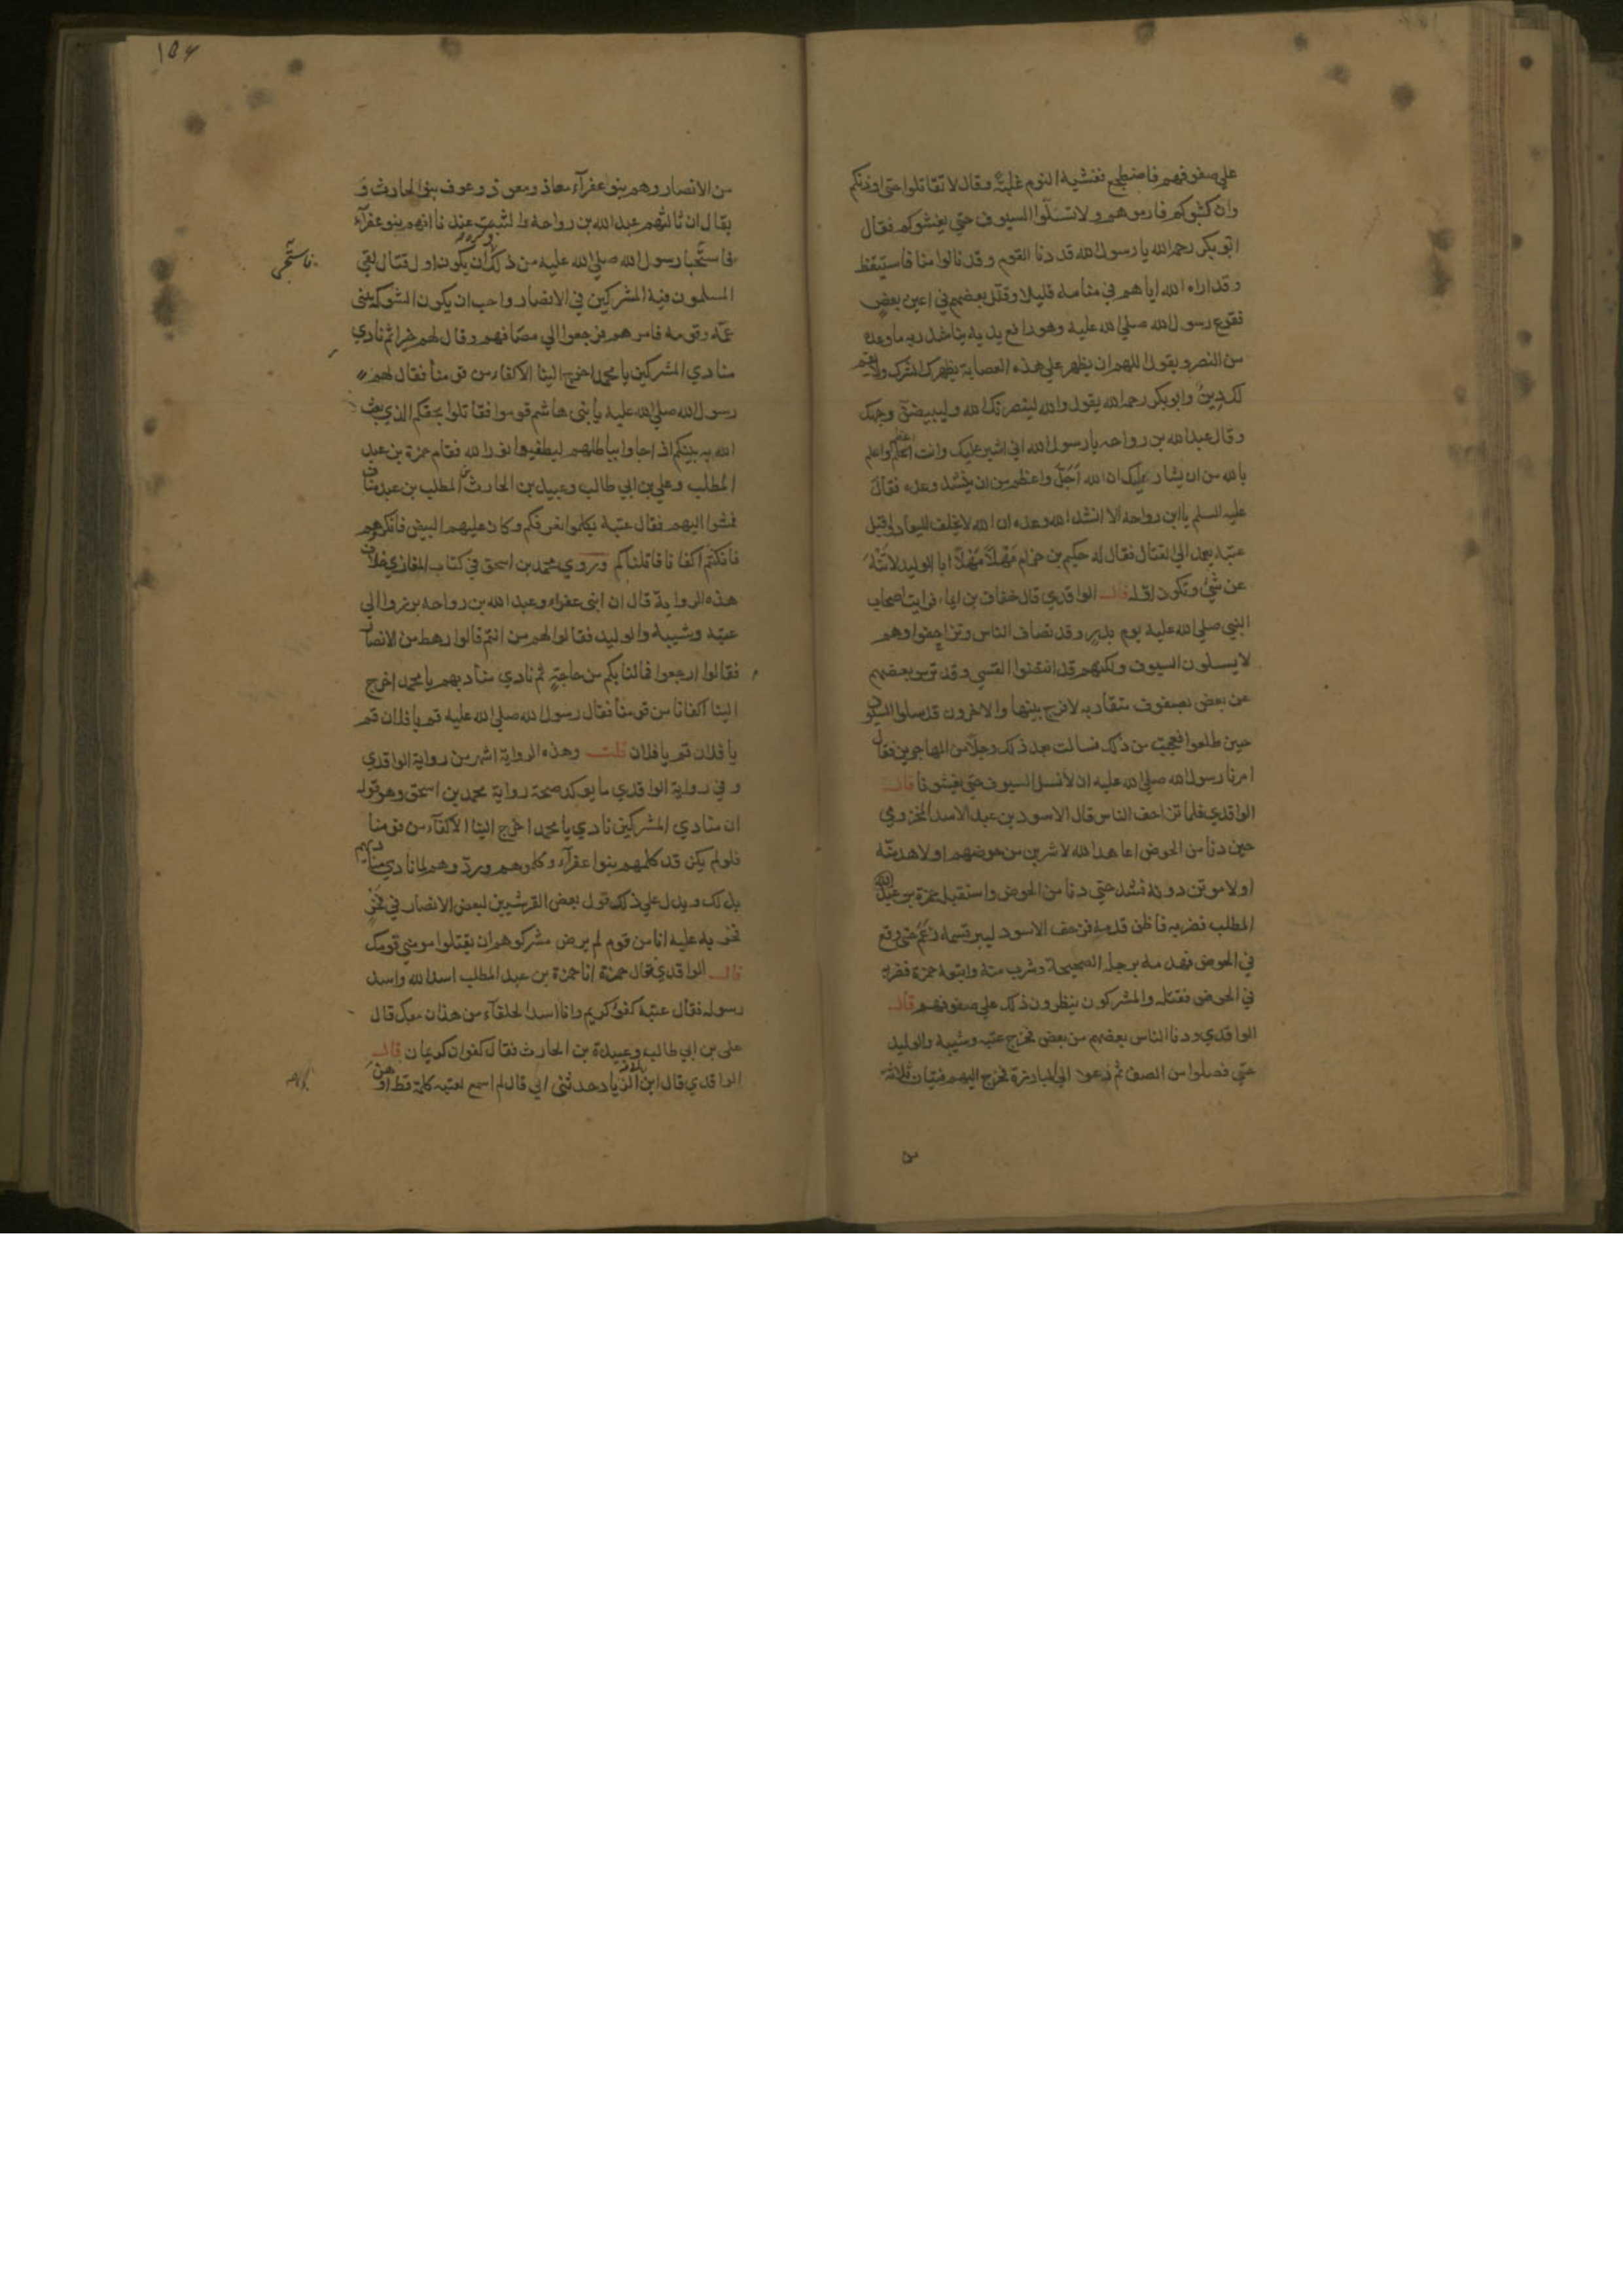 علي صفوفهم فاضطجع فغشيه النوم غلبة وقال لا تقاتلوا حتي اوذنكم
وان كثبوكم فارموهم ولا تسلوا السيوف حتي يغشوكم فقال
ابو بكر رحمه الله يا رسول الله قد دنا القوم وقد نالوا منا فاستيقظ
وقد اراه الله اياهم في منامه قليلا وقلل بعضهم في اعين بعض
ففزع رسول الله صلي الله عليه وهو رافع يديه يناشد ربه ما وعده
من النصر ويقول اللهم ان يظهر علي هذه العصابة يظهر الشرك ولا يقم
لك دين وابو بكر رحمه الله يقول والله لينصرنك الله وليبيضن وجهك
وقال عبد الله بن رواحه يا رسول الله اني اشير عليك وانت اعظم واعلم
بالله من ان يشار عليك ان الله اجل واعظم من ان ينشد وعده فقال
عليه السلم يا ابن رواحه الا انشد الله وعده ان الله لا يخلف الميعاد واقبل
عتبه يعمد الي القتال فقال له حكيم بن حزام مهلا مهلا ابا الوليد لا تنه
عن شي وتكون اوله قال الواقدي قال خفاف بن ايماء فرايت اصحاب
النبي صلي الله عليه يوم بدر وقد تصاف الناس وتزاحفوا وهم
لا يسلون السيوف ولكنهم قد انتضوا القسي وقد ترس بعضهم
عن بعض بصفوف متقاربه لا فرج بينها والاخرون قد سلوا السيوف
حين طلعوا فعجبت من ذلك فسالت بعد ذلك رجلا من المهاجرين فقال
امرنا رسول الله صلي الله عليه ان لا نسل السيوف حتي يغشونا قال
الواقدي فلما تزاحف الناس قال الاسود بن عبد الاسد المخزومي
حين دنا من الحوض اعاهد الله لاشربن من حوضهم او لاهدمنه
او لاموتن دونه فشد حتي دنا من الحوض واستقبله حمزة بن عبد
المطلب فضربه فاطن قدمه فزحف الاسود ليبر قسمه زعم حتي وقع
في الحوض فهدمه برجله الصحيحة وشرب منه واتبعه حمزة فضربه
في الحوض فقتله والمشركون ينظرون ذلك علي صفوفهم قال
الواقدي ودنا الناس بعضهم من بعض فخرج عتبه وشيبة والوليد
حتي فصلوا من الصف ثم دعوا الي المبارزة فخرج اليهم فتيان ثلاثه
من الانصار وهم بنو عفرآء معاذ ومعوذ وعوف بنو الحارث و
يقال ان ثالثهم عبد الله بن رواحة والثبت عندنا انهم بنو عفرآء
فاستحيا رسول الله صلي الله عليه من ذلك وكره ان يكون اول قتال لقي
فاستحيى
المسلمون فيه المشركين في الانصار واحب ان يكون الشوكه ببني
عمه وقومه فامرهم فرجعوا الي مصافهم وقال لهم خيرا ثم نادي
منادي المشركين يا محمد اخرج الينا الاكفاء من قومنا فقال لهم
رسول الله صلي الله عليه يا بني هاشم قوموا فقاتلوا بحقكم الذي بعث
الله به نبيكم اذ جاوا بباطلهم ليطفيوا نور الله فقام حمزة بن عبد
المطلب وعلي بن ابي طالب وعبيدة بن الحارث بن المطلب بن عبد مناف
فمشوا اليهم فقال عتبة تكلموا نعرفكم وكان عليهم البيض فانكروهم
فان كنتم اكفانا قاتلناكم وروي محمد بن اسحق في كتاب المغازي خلاف
هذه الرواية قال ان ابني عفراء وعبد الله بن رواحه برزوا الي
عتبه وشيبه والوليد فقالوا لهم من انتم قالوا رهط من الانصار
فقالوا ارجعوا فما لنا بكم من حاجة ثم نادي مناديهم يا محمد اخرج
الينا اكفانا من قومنا فقال رسول الله صلي الله عليه قم يا فلان قم
يا فلان قم يا فلان قلت وهذه الرواية اشهر من رواية الواقدي
وفي رواية الواقدي ما يوكد صحة رواية محمد بن اسحق وهو قوله
ان منادي المشركين نادي يا محمد اخرج الينا الاكفآء من قومنا
فلو لم يكن قد كلمهم بنوا عفرآء وكلموهم وردوهم لما نادي مناديهم
بذلك ويدل علي ذلك قول بعض القرشيين لبعض الانصار في فخر
فخر به عليه انا من قوم لم يرض مشركوهم ان يقتلوا مومني قومك
قال الواقدي فقال حمزة انا حمزة بن عبد المطلب اسد الله واسد
رسوله فقال عتبة كفو كريم وانا اسد الحلفآء من هذان معك قال
علي بن ابي طالب وعبيدة بن الحارث فقال كفوان كريمان قال
الواقدي قال ابن ابي الزناد حدثني ابي قال لم اسمع لعتبه كلمة قط اوهن